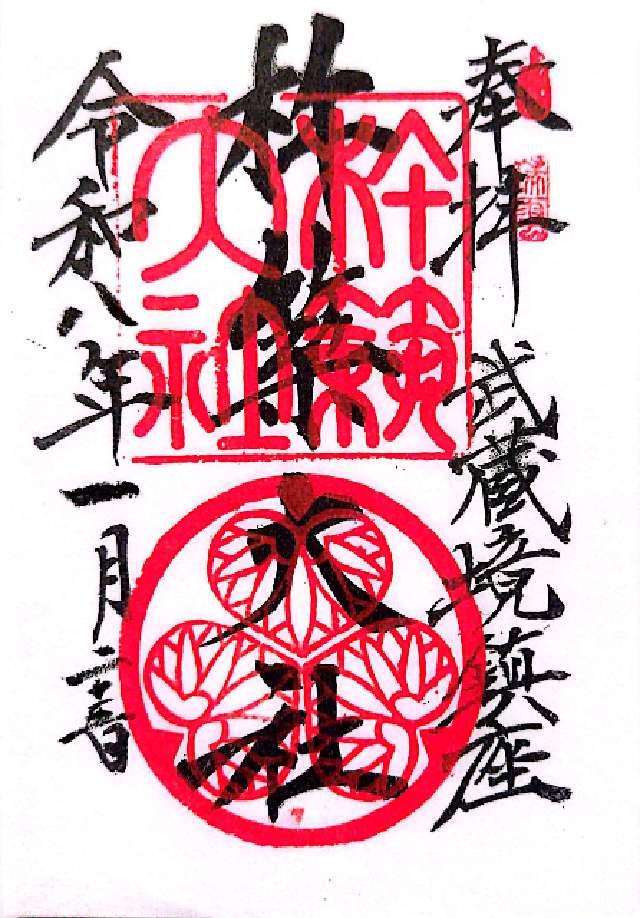 奉拝 武蔵境鎮座
杵築大社
令和八年一月
杵築
大社